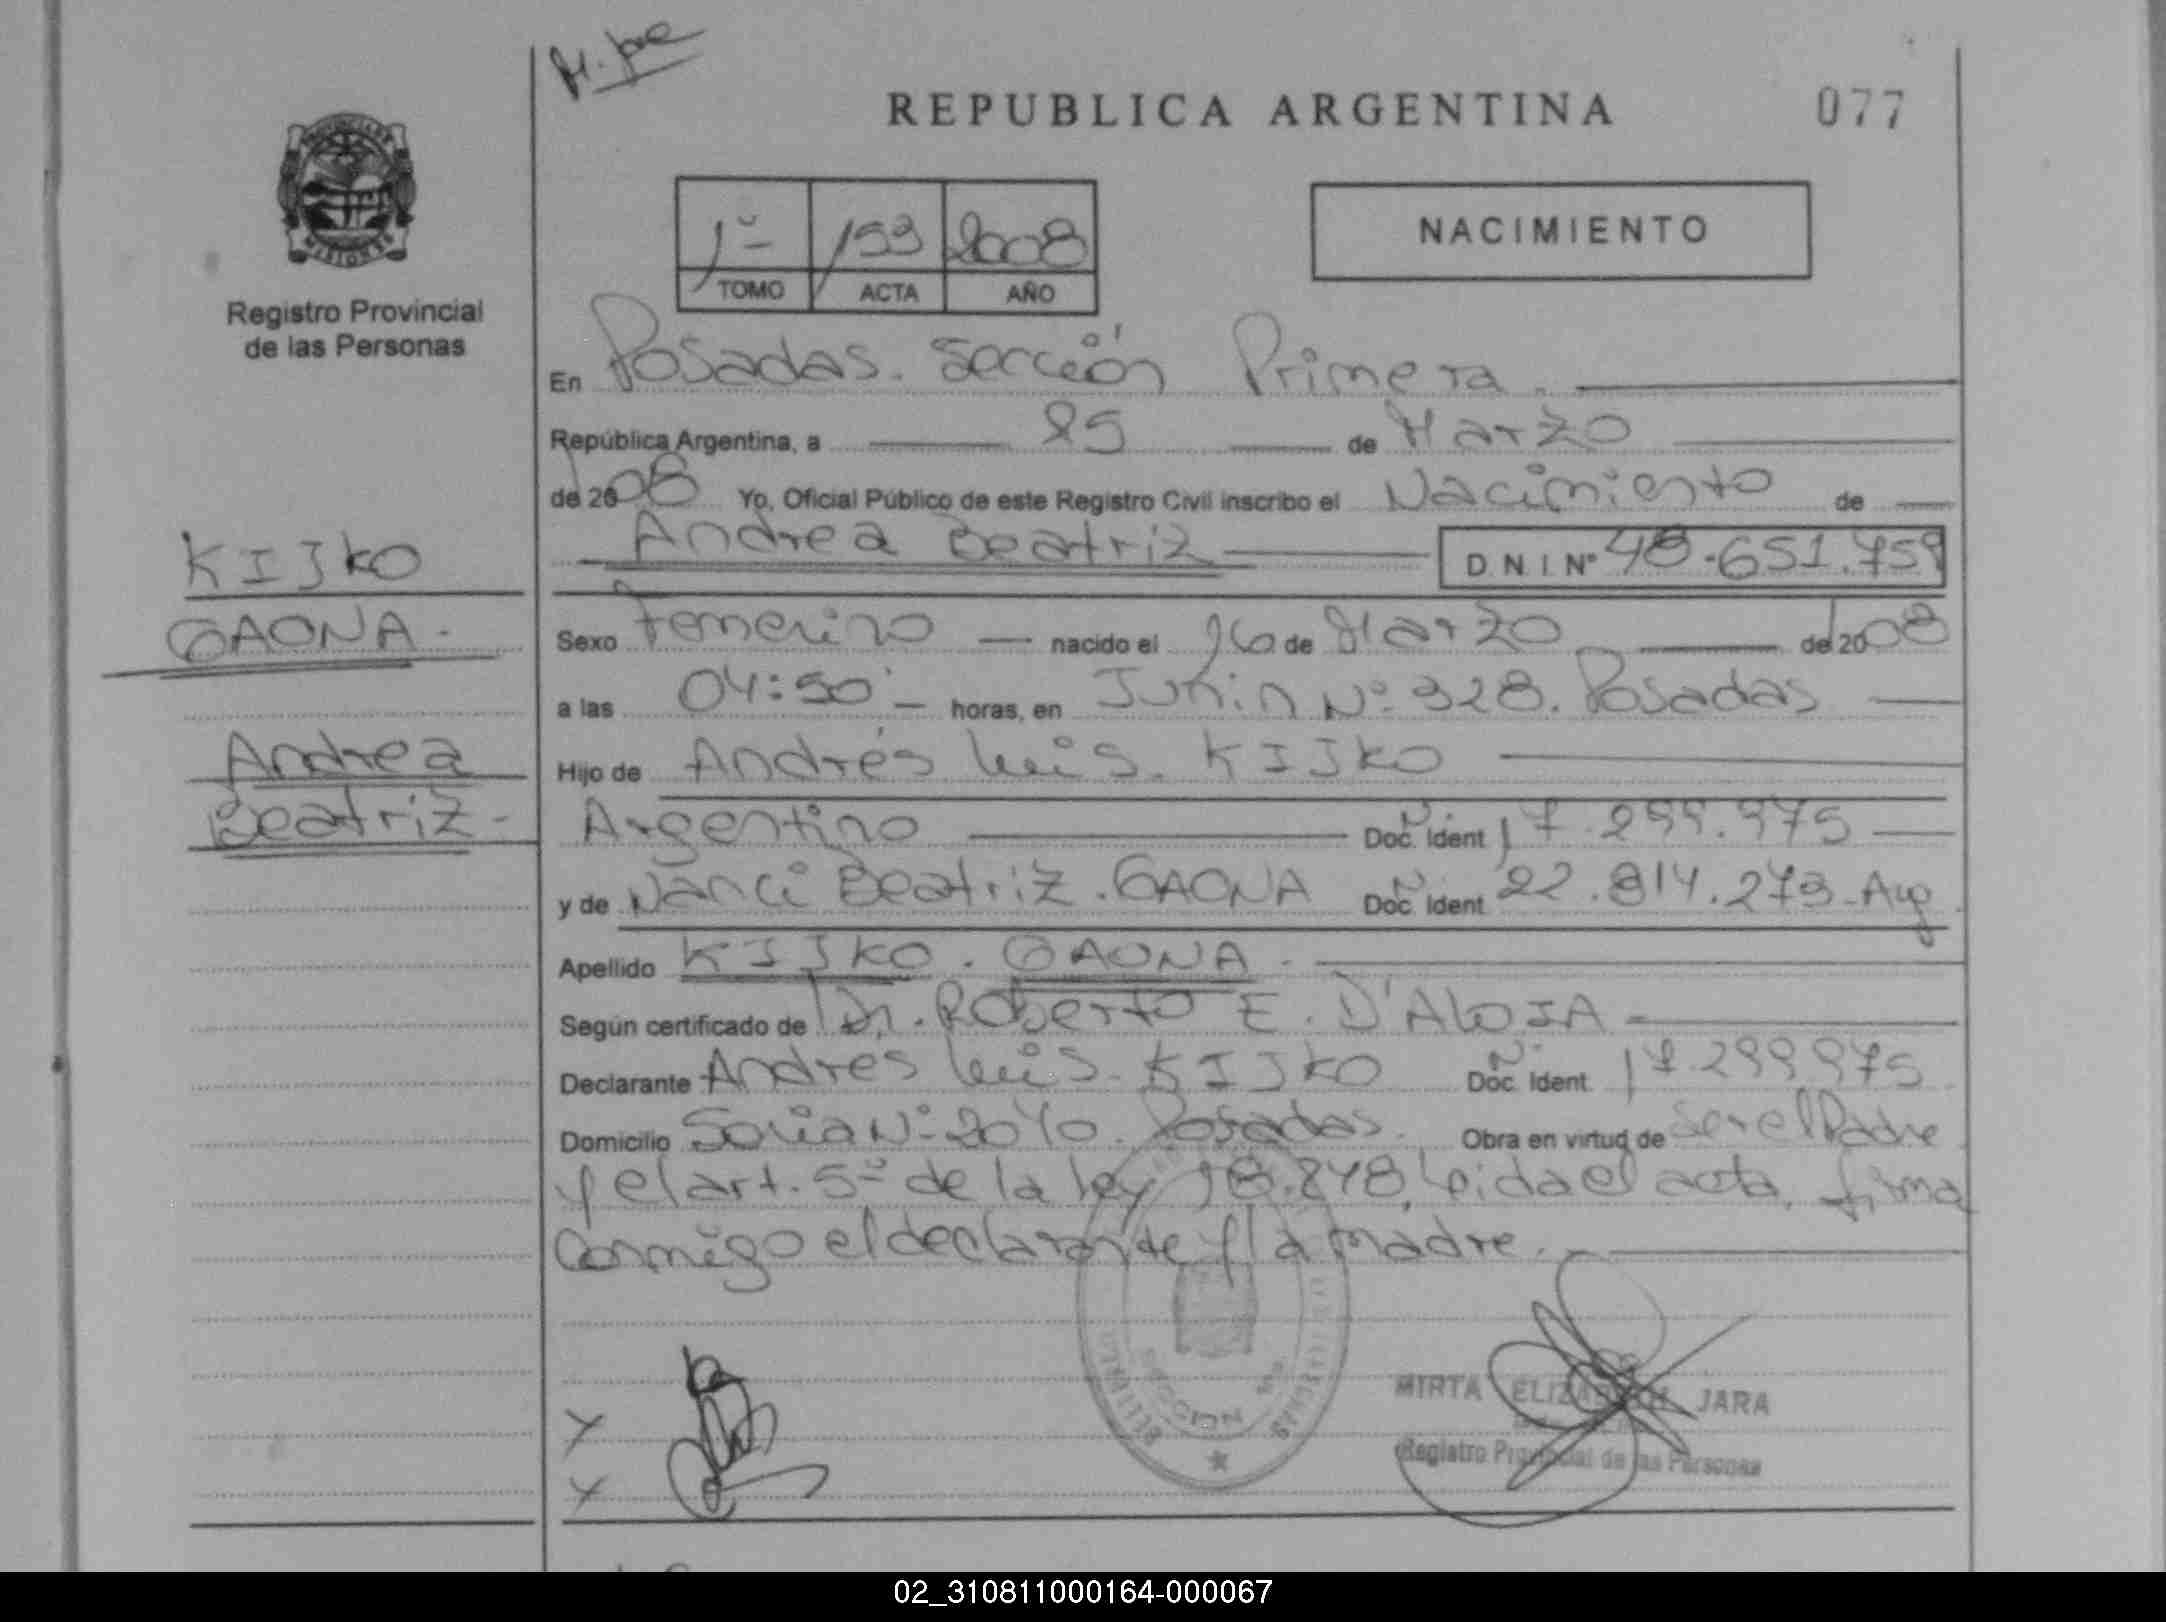 REPUBLICA ARGENTINA
077
PROVINCIA DE MISIONES
Registro Provincial
de las Personas
1º 153 2008
TOMO ACTA AÑO
NACIMIENTO
En Posadas. Sección Primera.
República Argentina, a 25 de Marzo
de 2008 Yo, Oficial Público de este Registro Civil inscribo el Nacimiento de
Andrea Beatriz D.N.I. Nº 48.651.759
KIJKO
GAONA.
Andrea
Beatriz.
Sexo Femenino nacido el 16 de Marzo de 2008
a las 04:50 horas, en Junin Nº 328. Posadas
Hijo de Andrés Luis. KIJKO
Argentino Doc. Ident 17.299.975
y de Nanci Beatriz. GAONA Doc. Ident 22.814.273 - Arg
Apellido KIJKO. GAONA.
Según certificado de Dr. Roberto E. D'AloIA
Declarante Andres Luis. KIJKO Doc. Ident. 17.299.975
Domicilio Nº 2040. Posadas. Obra en virtud de ser el Padre
y el art. 5º de la ley 18.248, leida el acta, firma
conmigo el declarante y la madre.
MIRTA ELIZABETH JARA
Registro Provincial de las Personas
02_310811000164-000067